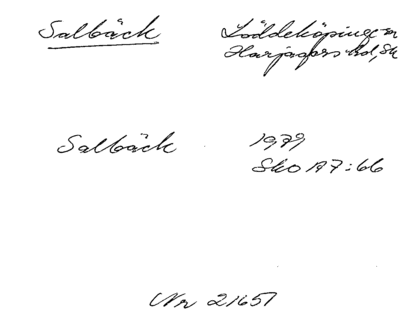 Salbäck Löddeköpinge sn
Harjagers hd, Sk
Salbäck 1979
Sko A7:66
Nr 21651